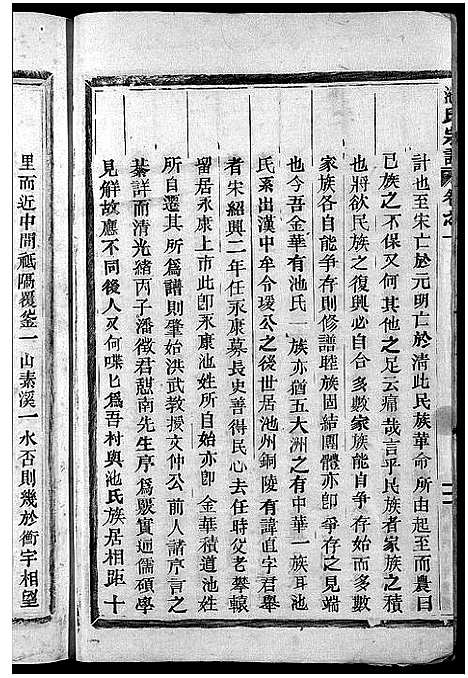 池氏宗譜 卷之一
計也至宋亡於元明亡於清此民族華命所由起至而農曰
已族之不保又何其他之足云痛哉言乎民族者家族之積
也將欲民族之復興必自合多數家族能自爭存始而多數
家族各自能爭存則修譜睦族固結團體亦即爭存之見端
也今吾金華有池氏一族亦猶五大洲之有中華一族耳池
氏系出漢中牟令瑗公之後世居池州銅陵有諱直字君舉
者宋紹興二年任永康幕長史善得民心去任時父老攀轅
留居永康上市此卽永康池姓所自始亦卽金華積道池姓
所自遷其所爲譜則肇始洪武教授文仲公前人諸序言之
綦詳而清光緒丙子潘徵君慰南先生序爲嚴實通儒碩學
見解故應不同後人又何喋匕爲吾村與池氏族居相距十
里而近中間祗隔覆釜一山素溪一水否則幾於衡宇相望